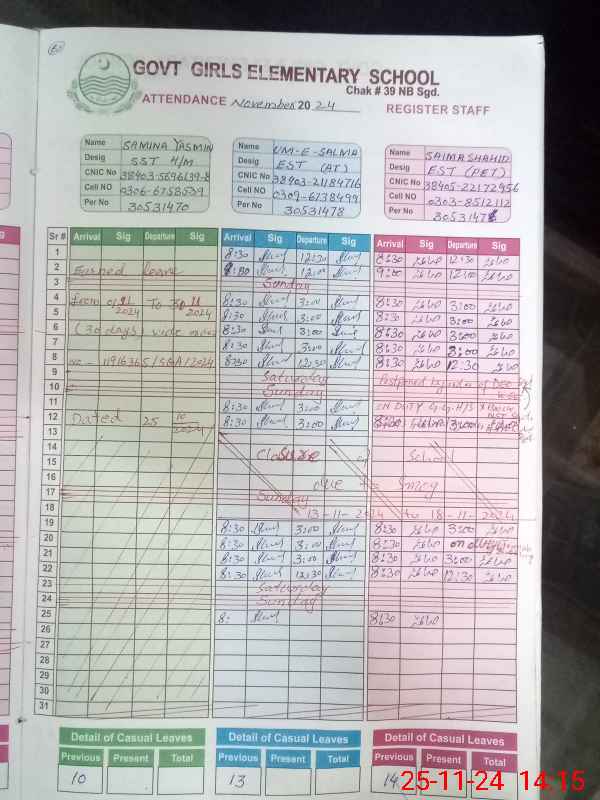 GOVT GIRLS ELEMENTARY SCHOOL
Chak # 39 NB Sgd.
ATTENDANCE November 2024 REGISTER STAFF
Name SAMINA YASMIN
Desig SST H/M
CNIC No 38403-5696139-8
Cell NO 0306-6758539
Per No 30531470
Name UM-E-SALMA
Desig EST (AT)
CNIC No 38403-21184716
Cell NO 0309-6738499
Per No 30531478
Name SAIMA SHAHID
Desig EST (PET)
CNIC No 38405-22172956
Cell NO 0303-8512112
Per No 3053147
Sr # Arrival Sig Departure Sig Arrival Sig Departure Sig Arrival Sig Departure Sig
1 8:30 12:30 8:30 12:30
2 Earned Leave 8:30 12:00 9:00 12:00
3 Sunday
4 from To 8:30 3:00 8:30 3:00
5 2024 2024 8:30 3:00 8:30 3:00
6 (30 days) vide 8:30 3:00 8:30 3:00
7 8:30 3:00 8:30 8:00
8 No - 11916365/SGA/2024 8:30 12:30 8:30 12:30
9 Saturday Postponed by
10 Sunday
11 8:30 3:00 ON DUTY G.G.H/S
12 Dated 25 10 2024 8:30 3:00 8:30 3:00
13
14 Closure of School
15
16 due to Smog
17 Sunday
18 13-11-2024 to 18-11-2024
19 8:30 3:00 8:30 3:00
20 8:30 3:00 8:30 on
21 8:30 3:00 8:30 3:00
22 8:30 12:30 8:30 12:30
23 Saturday
24 Sunday
25 8: 8:30
26
27
28
29
30
31
Detail of Casual Leaves Detail of Casual Leaves Detail of Casual Leaves
Previous Present Total Previous Present Total Previous Present Total
10 13 14
25-11-24 14:15